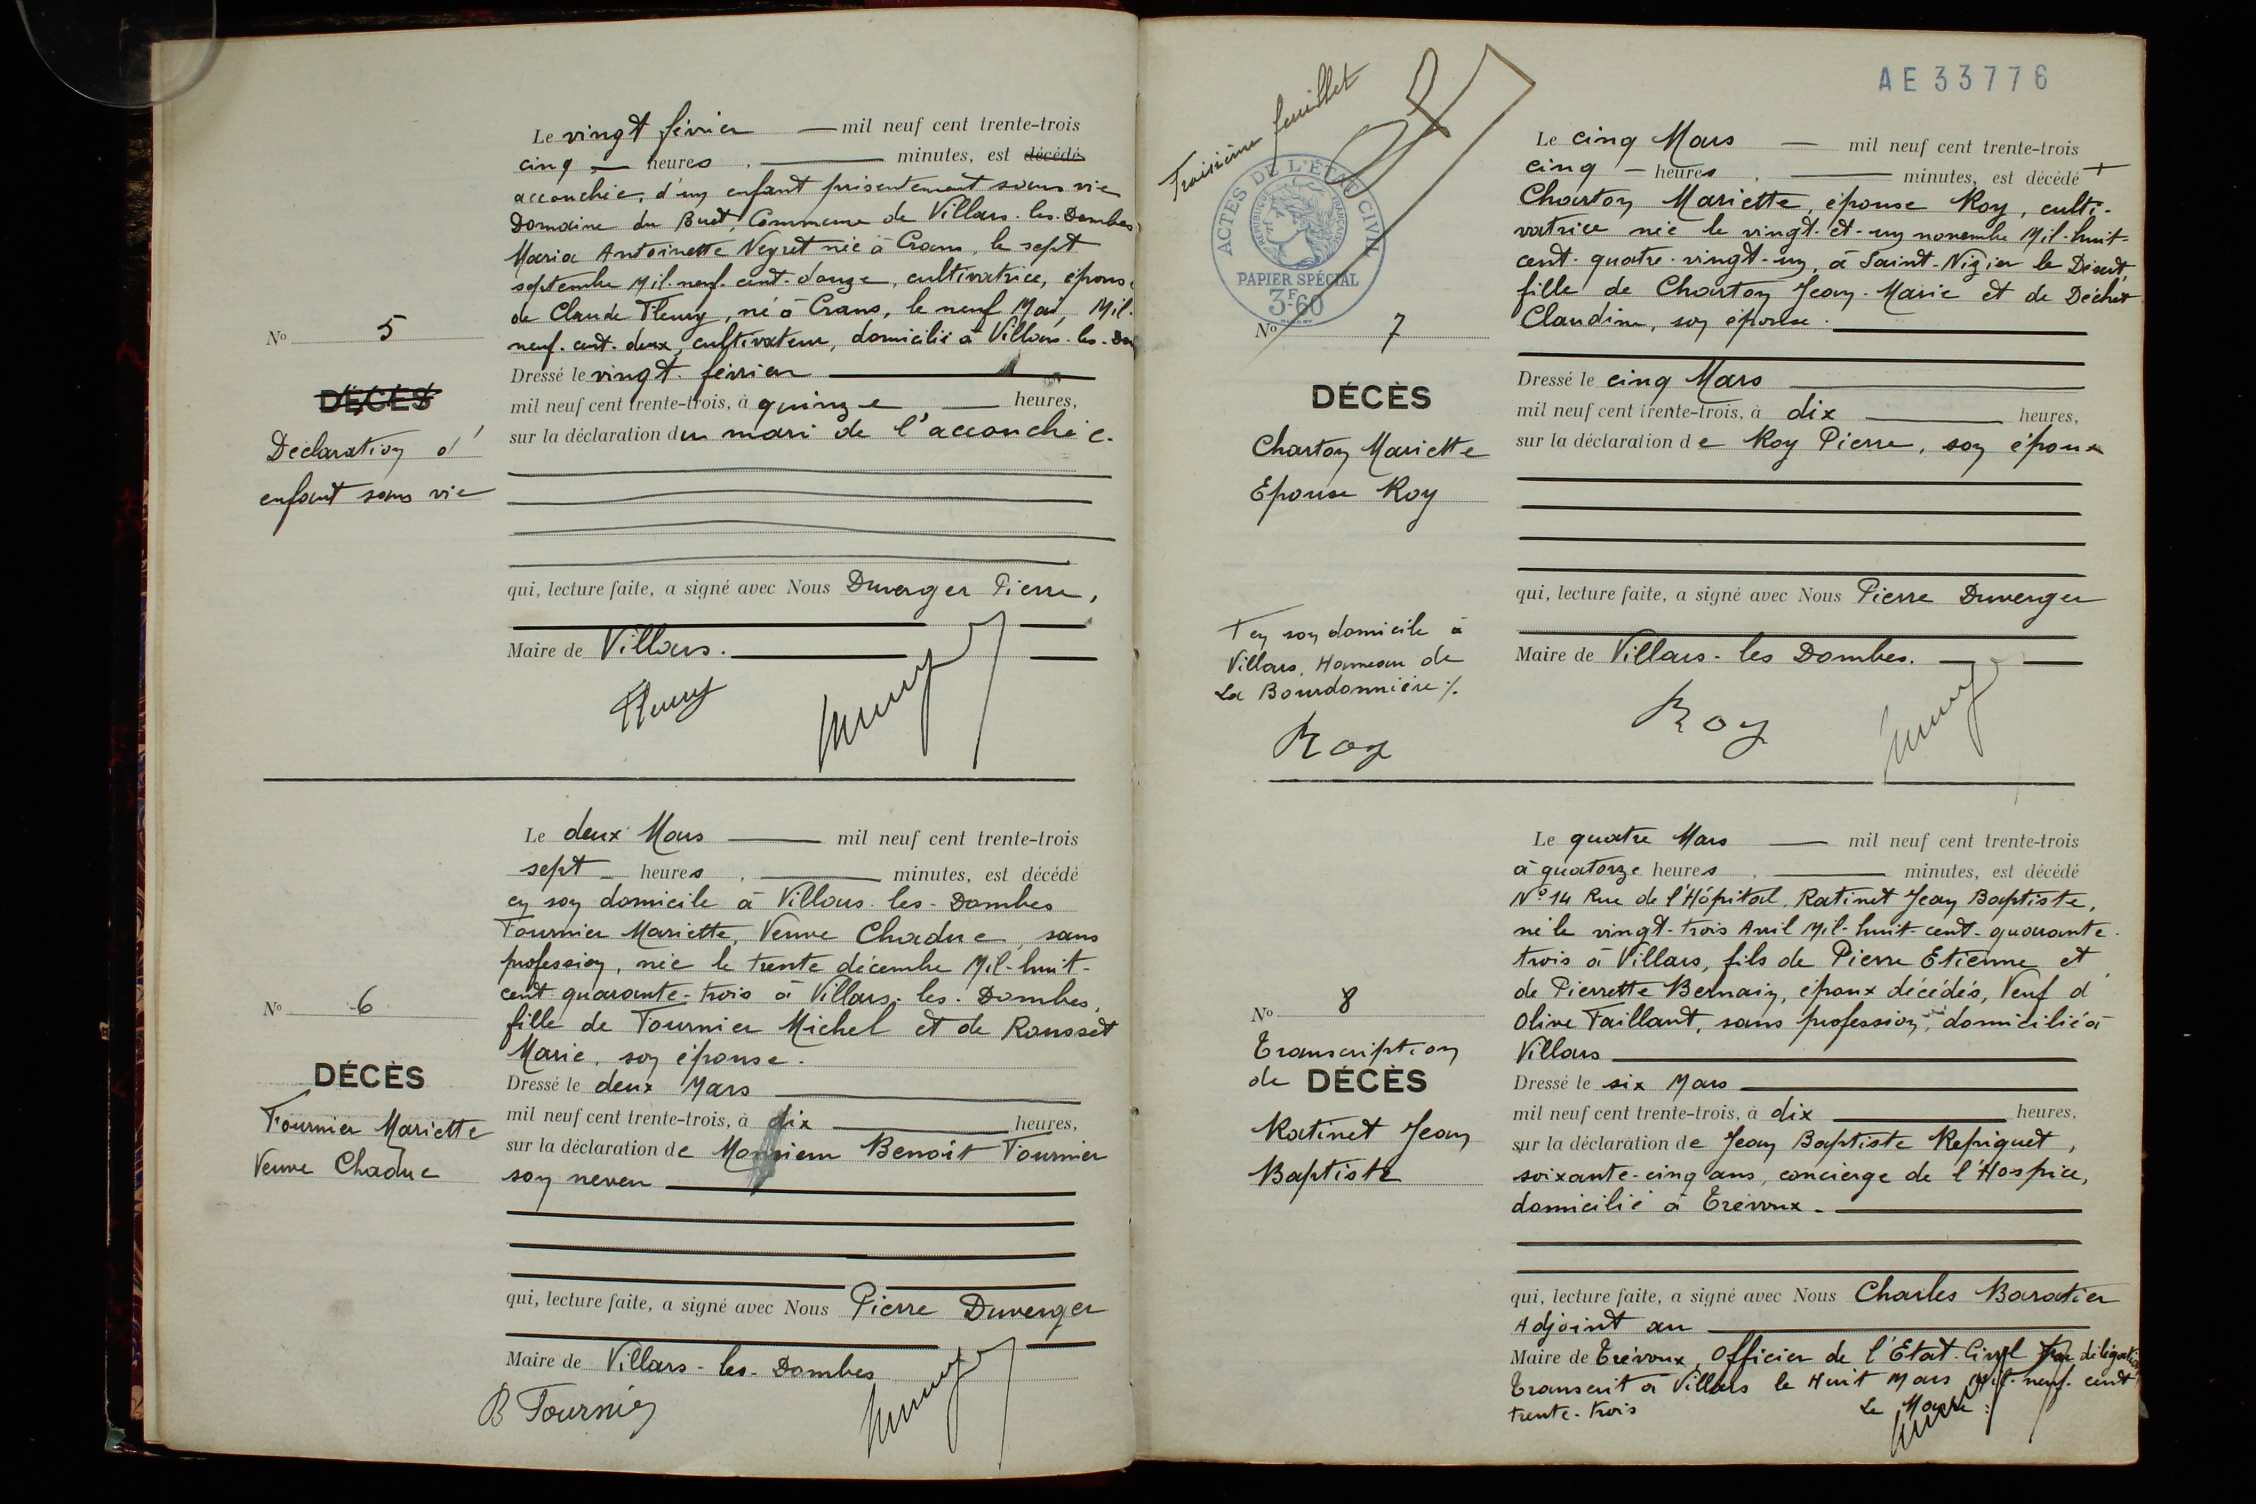 Le vingt février — mil neuf cent trente-trois
cinq — heures, — minutes, est décédé
accouchée, d'un enfant présentement sans vie
Domaine du Buet, Commune de Villars-les-Dombes
Maria Antoinette Neyret née à Crans, le sept
septembre Mil-neuf-cent-douze, cultivatrice, épouse
de Claude Fleury, né à Crans, le neuf Mai Mil-
neuf-cent-deux, cultivateur, domicilié à Villars-les-Do
No 5
DÉCÈS
Déclaration d'
enfant sans vie
Dressé le vingt février
mil neuf cent trente-trois, à quinze — heures,
sur la déclaration du mari de l'accouchée.
qui, lecture faite, a signé avec Nous Duverger Pierre,
Maire de Villars.
Fleury
Le deux Mars — mil neuf cent trente-trois
sept — heures, — minutes, est décédé
en son domicile à Villars-les-Dombes
Fournier Mariette, Veuve Chaduc, sans
profession, née le trente décembre Mil-huit-
cent-quarante-trois à Villars-les-Dombes,
fille de Fournier Michel et de Rousset
Marie, son épouse.
No 6
DÉCÈS
Fournier Mariette
Veuve Chaduc
Dressé le deux Mars
mil neuf cent trente-trois, à dix — heures,
sur la déclaration de Monsieur Benoit Fournier
son neveu
qui, lecture faite, a signé avec Nous Pierre Duverger
Maire de Villars-les-Dombes
B Fournier
AE 33776
Troisième feuillet
ACTES DE L'ÉTAT CIVIL
RÉPUBLIQUE FRANÇAISE
PAPIER SPÉCIAL
3F60
Le cinq Mars — mil neuf cent trente-trois
cinq — heures, — minutes, est décédé +
Charton Mariette, épouse Roy, culti-
vatrice née le vingt-et-un novembre Mil-huit-
cent-quatre-vingt-un, à Saint-Nizier le Désert,
fille de Charton Jean-Marie et de Déchet
Claudine, son épouse.
No 7
DÉCÈS
Charton Mariette
Epouse Roy
Dressé le cinq Mars
mil neuf cent trente-trois, à dix — heures,
sur la déclaration de Roy Pierre, son époux
qui, lecture faite, a signé avec Nous Pierre Duverger
Maire de Villars-les Dombes.
+ en son domicile à
Villars, Hameau de
La Bourdonnière ./.
Roy
Roy
Le quatre Mars — mil neuf cent trente-trois
à quatorze heures, — minutes, est décédé
No 14 Rue de l'Hôpital, Ratinet Jean Baptiste,
né le vingt-trois Avril Mil-huit-cent-quarante-
trois à Villars, fils de Pierre Etienne et
de Pierrette Bernain, époux décédés, Veuf d'
Olive Taillant, sans profession, domicilié à
Villars
No 8
Transcription
de DÉCÈS
Ratinet Jean
Baptiste
Dressé le six Mars
mil neuf cent trente-trois, à dix — heures,
sur la déclaration de Jean Baptiste Repiquet,
soixante-cinq ans, concierge de l'Hospice,
domicilié à Trévoux.
qui, lecture faite, a signé avec Nous Charles Baratier
Adjoint au
Maire de Trévoux, Officier de l'Etat-Civil par délégation
Transcrit à Villars le Huit Mars Mil-neuf-cent
trente-trois Le Maire :